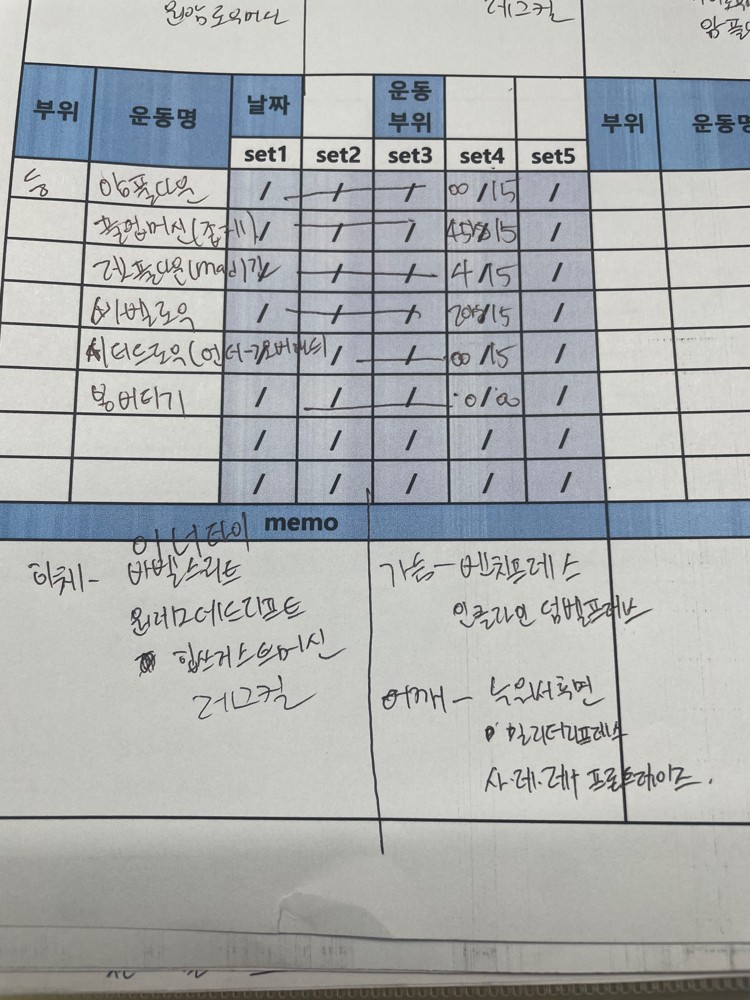 원암로우머신
레그컬
암풀다
부위 운동명 날짜 운동 부위 부위 운동명
set1 set2 set3 set4 set5
등 암풀다운 / / / 00 /15 /
풀업머신(중려) / / / 45 /15 /
렛풀다운(mag / / / 4 /15 /
바벨로우 / / / 20 /15 /
시티드로우(언더- / / 00 /15 /
봉버티기 / / / /
/ / / / /
/ / / / /
memo
이너타이
하체- 바벨스쿼트
원레그데드리프트
힙쓰러스트머신
레그컬
가슴- 벤치프레스
인클라인 덤벨프레스
어깨-
밀리터리프레스
사.레.레 프론트레이즈.